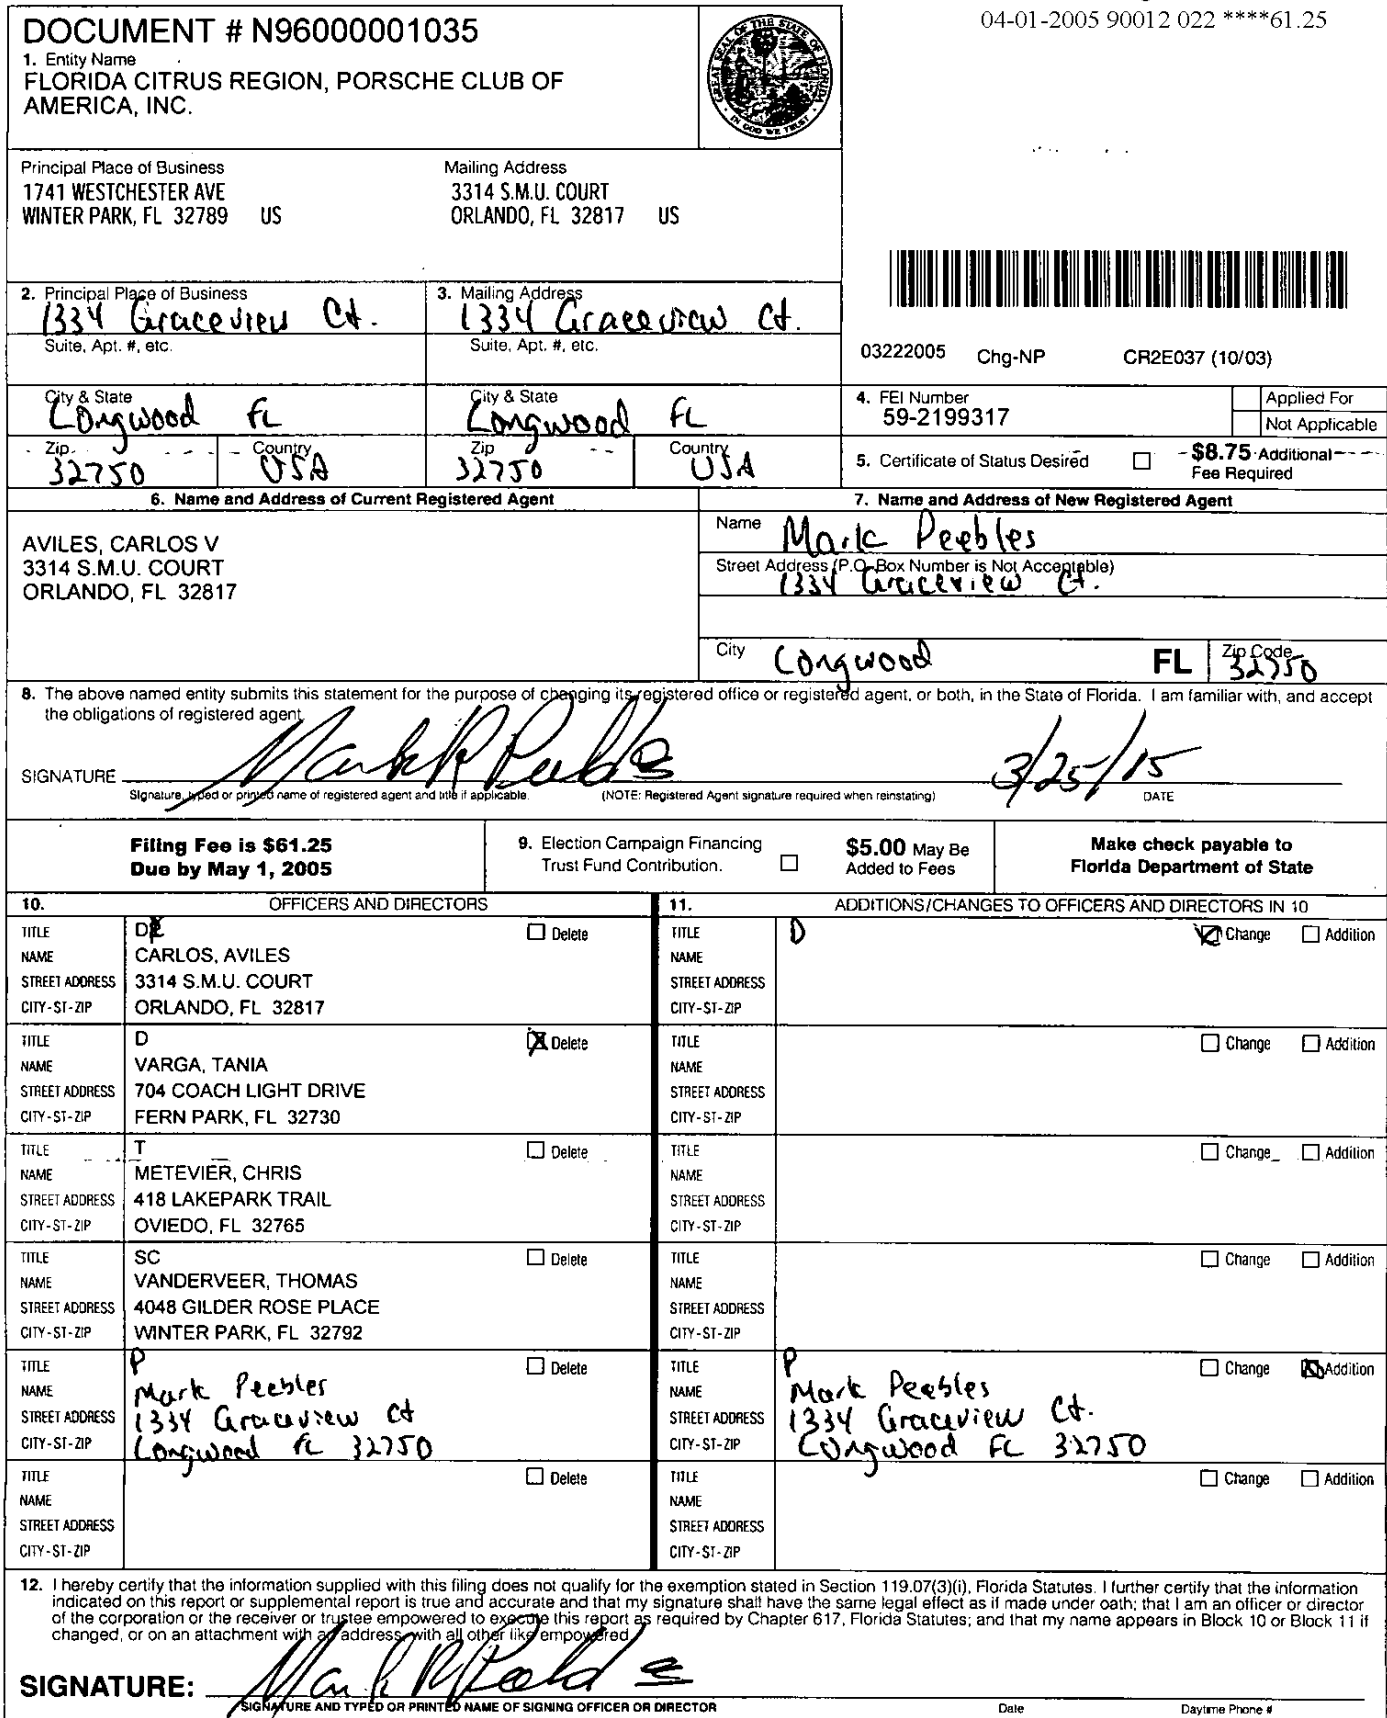 04-01-2005 90012 022 ****61.25
DOCUMENT # N96000001035
1. Entity Name
FLORIDA CITRUS REGION, PORSCHE CLUB OF
AMERICA, INC.
GREAT SEAL OF THE STATE OF FLORIDA
IN GOD WE TRUST
Principal Place of Business
1741 WESTCHESTER AVE
WINTER PARK, FL 32789 US
Mailing Address
3314 S.M.U. COURT
ORLANDO, FL 32817 US
2. Principal Place of Business
1334 Graceview Ct.
Suite, Apt. #, etc.
City & State
Longwood FL
Zip
32750
Country
USA
3. Mailing Address
1334 Graceview Ct.
Suite, Apt. #, etc.
City & State
Longwood FL
Zip
32750
Country
USA
03222005 Chg-NP CR2E037 (10/03)
4. FEI Number
59-2199317
Applied For
Not Applicable
5. Certificate of Status Desired
$8.75 Additional
Fee Required
6. Name and Address of Current Registered Agent
AVILES, CARLOS V
3314 S.M.U. COURT
ORLANDO, FL 32817
7. Name and Address of New Registered Agent
Name Mark Peebles
Street Address (P.O. Box Number is Not Acceptable)
1334 Graceview Ct.
City Longwood FL Zip Code 32750
8. The above named entity submits this statement for the purpose of changing its registered office or registered agent, or both, in the State of Florida. I am familiar with, and accept
the obligations of registered agent.
SIGNATURE Mark R Peebles 3/25/15
Signature, typed or printed name of registered agent and title if applicable. (NOTE: Registered Agent signature required when reinstating) DATE
Filing Fee is $61.25
Due by May 1, 2005
9. Election Campaign Financing
Trust Fund Contribution.
$5.00 May Be
Added to Fees
Make check payable to
Florida Department of State
10. OFFICERS AND DIRECTORS
11. ADDITIONS/CHANGES TO OFFICERS AND DIRECTORS IN 10
TITLE D Delete
NAME CARLOS, AVILES
STREET ADDRESS 3314 S.M.U. COURT
CITY-ST-ZIP ORLANDO, FL 32817
TITLE D Change Addition
NAME
STREET ADDRESS
CITY-ST-ZIP
TITLE D Delete
NAME VARGA, TANIA
STREET ADDRESS 704 COACH LIGHT DRIVE
CITY-ST-ZIP FERN PARK, FL 32730
TITLE Change Addition
NAME
STREET ADDRESS
CITY-ST-ZIP
TITLE T Delete
NAME METEVIER, CHRIS
STREET ADDRESS 418 LAKEPARK TRAIL
CITY-ST-ZIP OVIEDO, FL 32765
TITLE Change Addition
NAME
STREET ADDRESS
CITY-ST-ZIP
TITLE SC Delete
NAME VANDERVEER, THOMAS
STREET ADDRESS 4048 GILDER ROSE PLACE
CITY-ST-ZIP WINTER PARK, FL 32792
TITLE Change Addition
NAME
STREET ADDRESS
CITY-ST-ZIP
TITLE P Delete
NAME Mark Peebles
STREET ADDRESS 1334 Graceview Ct
CITY-ST-ZIP Longwood FL 32750
TITLE P Change Addition
NAME Mark Peebles
STREET ADDRESS 1334 Graceview Ct.
CITY-ST-ZIP Longwood FL 32750
TITLE Delete
NAME
STREET ADDRESS
CITY-ST-ZIP
TITLE Change Addition
NAME
STREET ADDRESS
CITY-ST-ZIP
12. I hereby certify that the information supplied with this filing does not qualify for the exemption stated in Section 119.07(3)(i), Florida Statutes. I further certify that the information
indicated on this report or supplemental report is true and accurate and that my signature shall have the same legal effect as if made under oath; that I am an officer or director
of the corporation or the receiver or trustee empowered to execute this report as required by Chapter 617, Florida Statutes; and that my name appears in Block 10 or Block 11 if
changed, or on an attachment with an address, with all other like empowered.
SIGNATURE: Mark R Peebles
SIGNATURE AND TYPED OR PRINTED NAME OF SIGNING OFFICER OR DIRECTOR Date Daytime Phone #